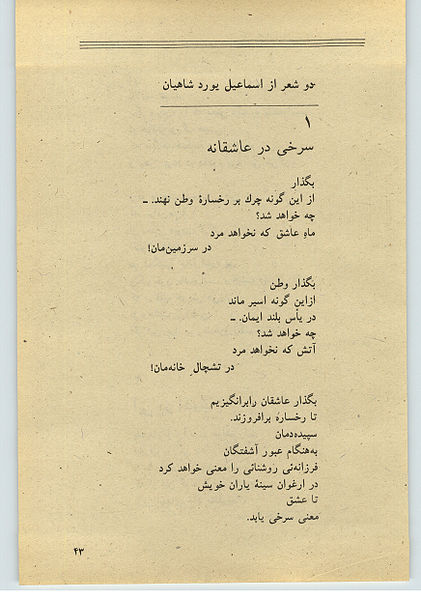 دو شعر از اسماعیل یورد شاهیان
۱
سرخی در عاشقانه
بگذار
از این گونه چرك بر رخسارهٔ وطن نهند. ــ
چه خواهد شد؟
ماه عاشق که نخواهد مرد
در سرزمین‌مان!
بگذار وطن
ازاین گونه اسیر ماند
در یأس بلند ایمان. ــ
چه خواهد شد؟
آتش که نخواهد مرد
در تشچال خانه‌مان!
بگذار عاشقان رابرانگیزیم
تا رخساره برافروزند.
سپیده‌دمان
به‌هنگام عبور آشفتگان
فرزانه‌ئی روشنائی را معنی خواهد کرد
در ارغوان سینهٔ یاران خویش
تا عشق
معنی سرخی یابد.
۴۳